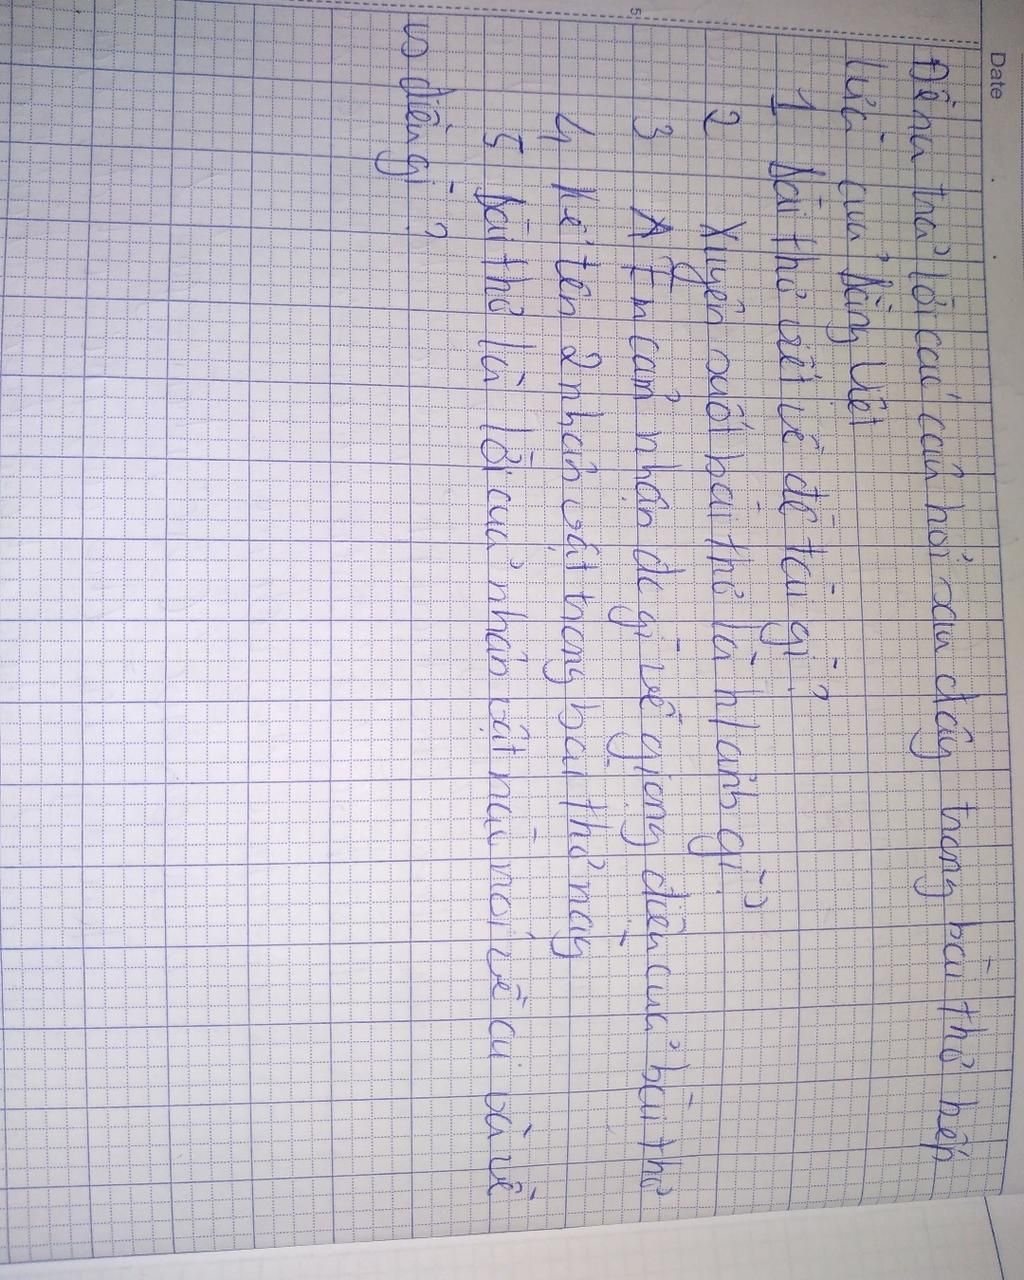 Date
Đề bài trả lời các câu hỏi sau đây trong bài thơ bếp
lửa của Bằng Việt
1 Bài thơ viết về đề tài gì?
2 Xuyên suốt bài thơ là h/ảnh gì?
3 Em cảm nhận đc gì về giọng điệu của bài thơ
4 Kể tên 2 nhân vật trong bài thơ này
5 Bài thơ là lời của nhân vật nào nói về ai và về
điều gì?
5